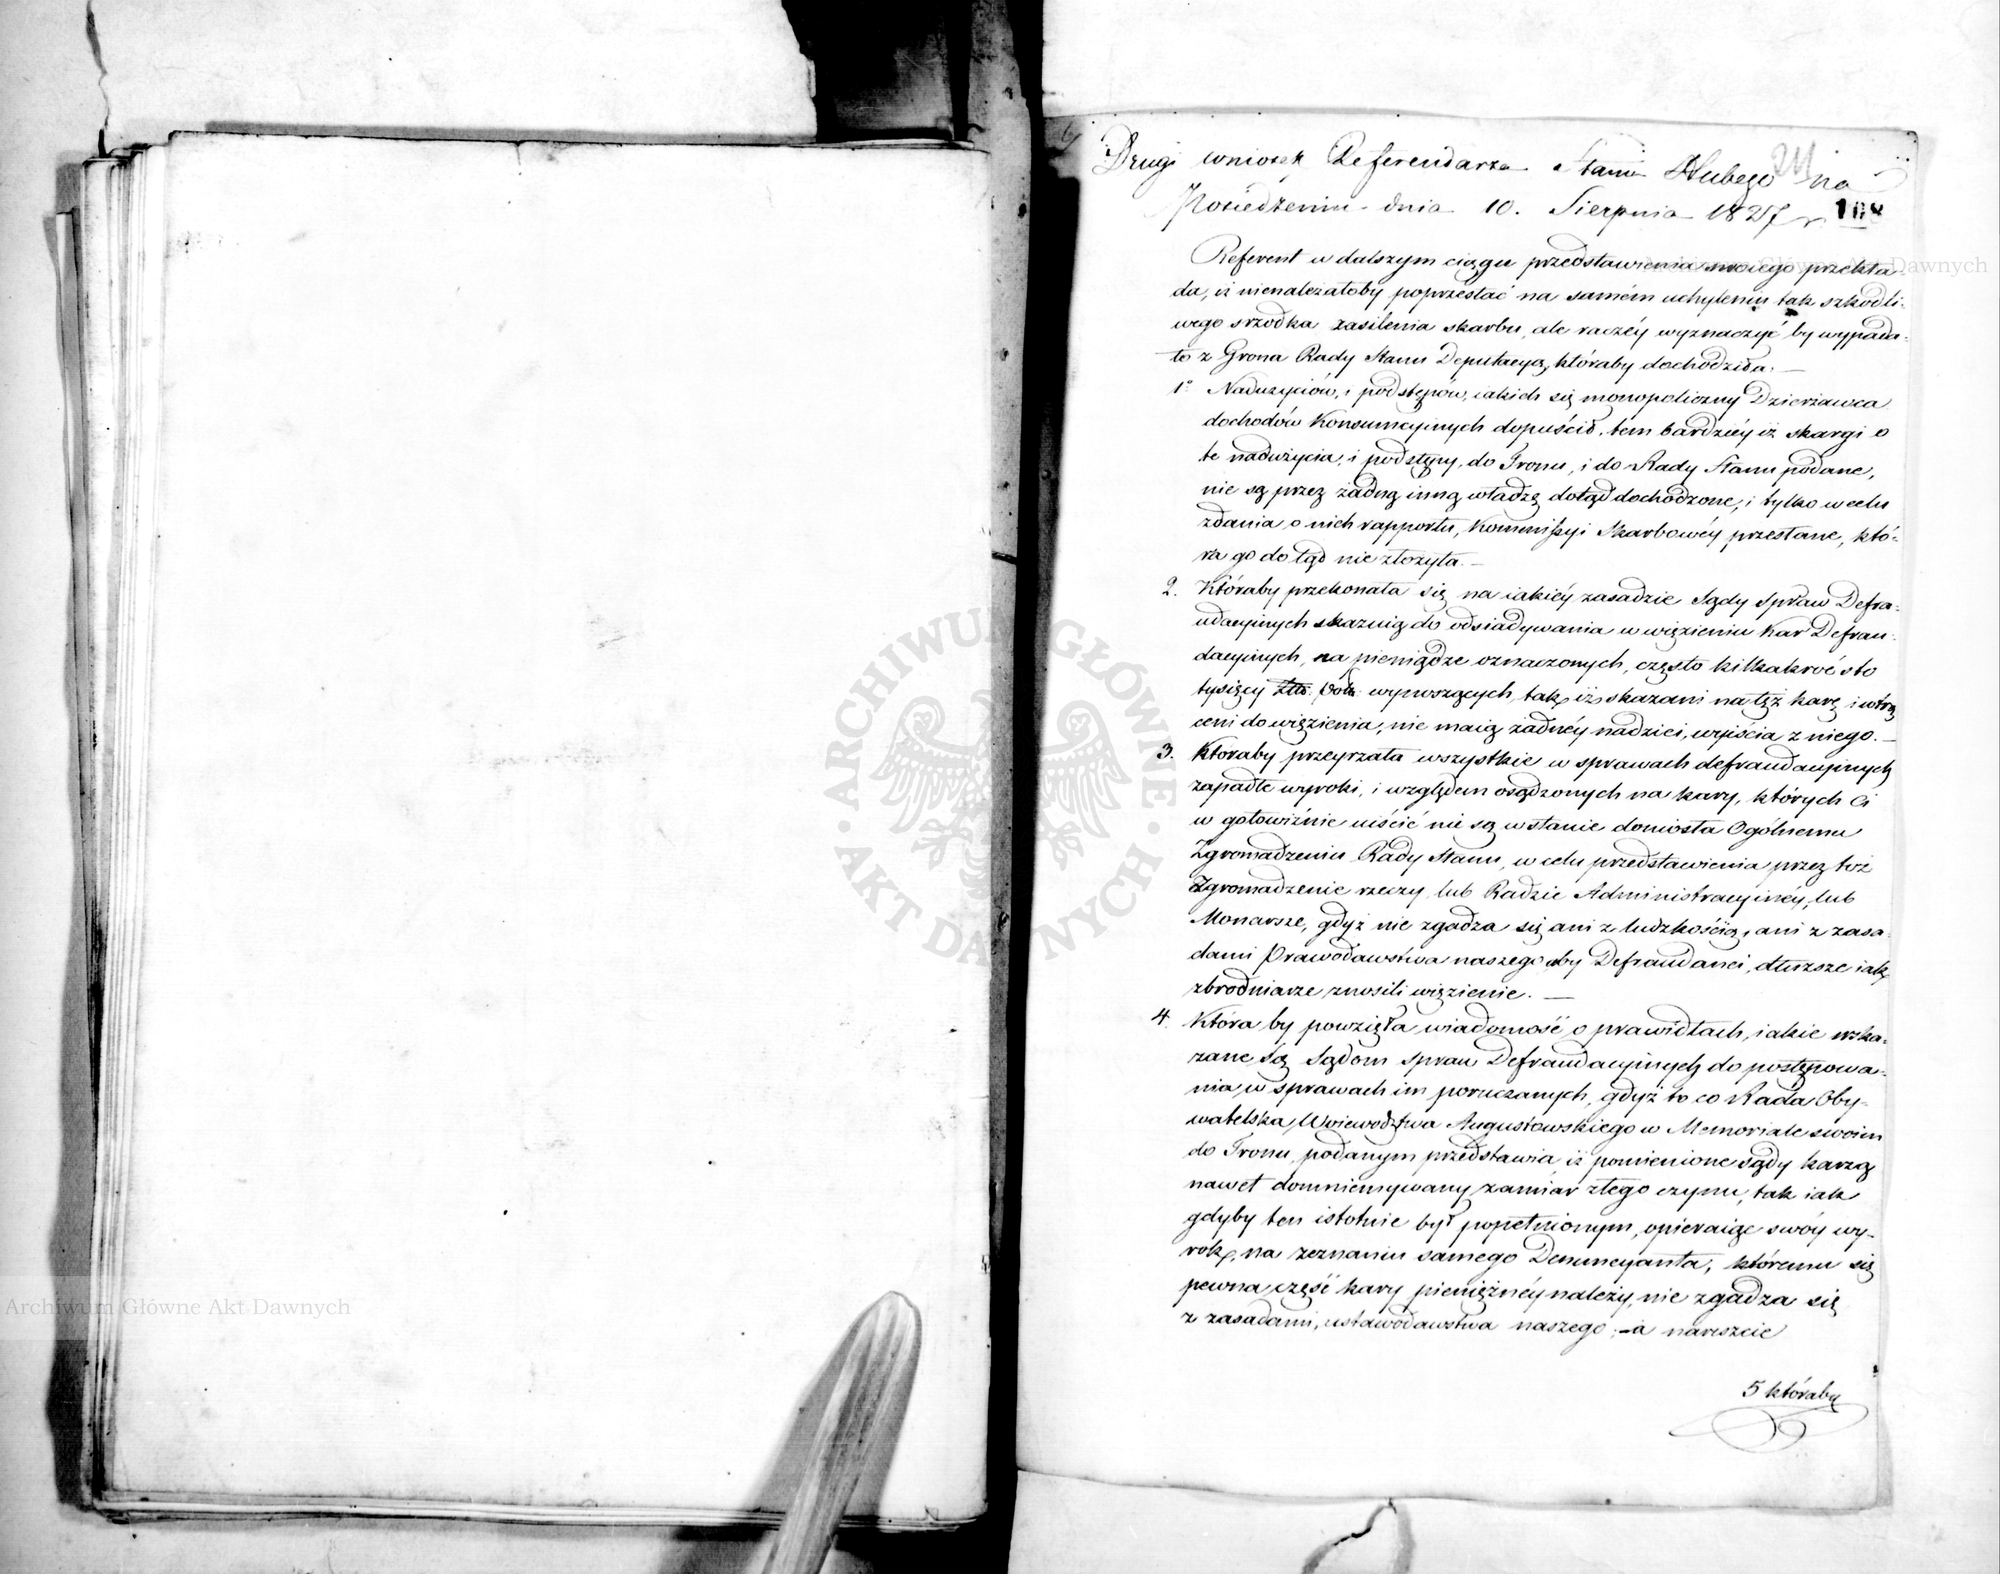 Drugi wniosek Referendarza Stanu Hubego na
Posiedzeniu dnia 10. Sierpnia 1827 r.
108
Referent w dalszym ciągu przedstawienia swoiego przekła-
da, iż nienależałoby poprzestać na samém uchyleniu tak szkodli-
wego srzodka zasilenia skarbu, ale raczéy wyznaczyć by wypada-
ło z Grona Rady Stanu Deputacyą, któraby dochodziła. —
1° Nadużyciów, i podstępów, iakich się monopoliczny Dzierżawca
dochodów Konsumcyjnych dopuścił, tem bardziéy iż skargi o
te nadużycia, i podstępy, do Tronu, i do Rady Stanu podane,
nie są przez żadną inną władzę dotąd dochodzone, i tylko w celu
zdania o nich rapportu, Kommissyi Skarbowéy przesłane, któ-
ra go do tąd nie złożyła. —
2. Któraby przekonała się na iakiéy zasadzie Sądy Spraw Defra-
udacyinych skazuią do odsiadywania w więzieniu Kar Defrau-
dacyinych, na pieniądze oznaczonych, często kilkakroć sto
tysięcy wynoszących, tak, iż skazani na tęż karę, i wtrą
ceni do więzienia, nie maią żadnéy nadziei, wyiścia z niego. —
3. Któraby przeyrzała wszystkie w sprawach defraudacyinych
zapadłe wyroki, i względem osądzonych na kary, których Ci
w gotowiźnie uiścić nie są w stanie doniosła Ogólnemu
Zgromadzeniu Rady Stanu, w celu przedstawienia przez toż
Zgromadzenie rzeczy, lub Radzie Administracyinéy, lub
Monarsze, gdyż nie zgadza się ani z ludzkością, ani z zasa-
dami Prawodawstwa naszego aby Defraudanci, dłuższe iak
zbrodniarze znosili więzienie. —
4. Która by powzięła wiadomość o prawidłach, iakie wska-
zane są Sądom Spraw Defraudacyinych do postępowa-
nia w sprawach im poruczanych, gdyż to co Rada Oby-
watelska Woiewodztwa Augustowskiego w Memoriale swoim
do Tronu podanym przedstawia, iż pomienione sądy karzą
nawet domniemywany zamiar złego czynu, tak iak
gdyby ten istotnie był popełnionym, opieraiąc swóy wy-
rok, na zeznaniu samego Denuncyanta, któremu się
pewna część kary pieniężnéy należy, nie zgadza się
z zasadami, ustawodawstwa naszego; — a nareszcie
5 któraby
Archiwum Główne Akt Dawnych
Archiwum Główne Akt Dawnych
ARCHIWUM GŁÓWNE · AKT DAWNYCH ·